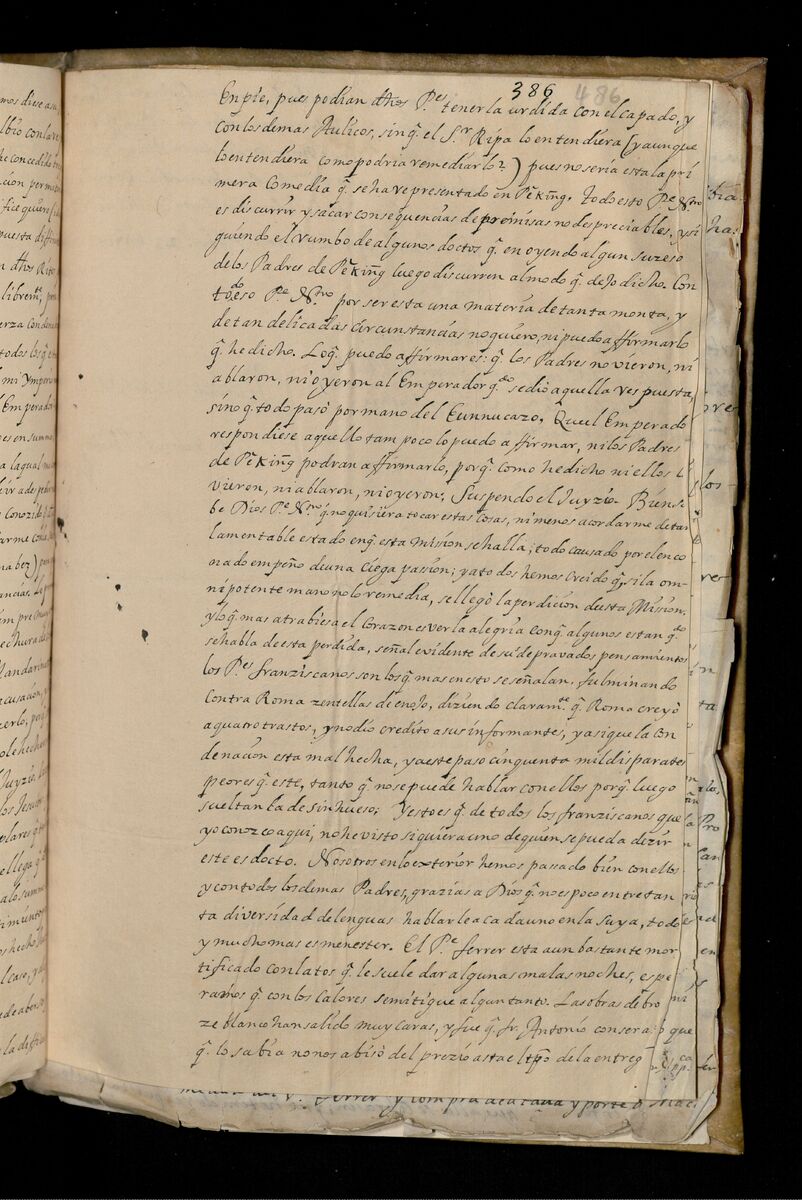 386 486
En pie, pues podian dhos P.es tener la urdida con el capado, y
con los demas Aulicos, sin q.e el S.r Ripa lo entendiera (y aunque
lo entendiera como podria remediarlo?) pues no seria esta la pri
mera Comedia q.e se ha representado en Pe king. todo esto P.e N.tro
es discurrir y sacar consequencias de premisas no despreciables, y si
guiendo el rumbo de algunos doctos q.e en oyendo algun suzeso
de los Padres de Pe king luego discurren al modo q.e dejo dicho. Con
todo eso P.e N.tro por ser esta una materia de tanta monta, y
de tan delicadas circunstancias no quiero, ni puedo affirmarlo
q.e he dicho. Lo q.e puedo affirmar es: q.e los Padres no vieron, ni
ablaron, ni oyeron al Emperador q.do se dio aquella respuesta,
sino q.e todo pasò por mano del Eunnucazo. Qu el Emperado
respondiese aquello tam poco lo puedo affirmar, ni los Padres
de Pe king podran affirmarlo, porq.e como he dicho ni ellos l
vieron, ni ablaron, ni oyeron. Suspendo el Juyzio. Bien sa
be Dios P.e N.tro q.e no quisiera tocar estas cosas, ni menos acordarme de tan
lamentable estado en q.e esta mission se halla; todo causado por el enco
nado empeño de una ciega passion; ya todos hemos creido q.e, si la om
nipotente mano no lo remedia, se llegò la perdicion de esta Mission,
y lo q.e mas atrabiesa el corazon es ver la alegria con q.e algunos estan q.do
se habla de esta perdida, señal evidente de su depravados pensamientos
los P.es franziscanos son los q.e mas en esto se señalan, fulminando
contra Roma zentellas de enojo, diziendo claram.te q.e Roma creyò
a quatro trastos, y no dio credito a sus informantes, y asi que la con
denacion esta mal hecha, y a este paso cinquenta mil disparates
peores q.e este, tanto q.e no se puede hablar con ellos porq.e luego
sueltan la de sin hueso; Y esto es q.e de todos los franziscanos que
yo conozco aqui, no he visto siquiera uno de quien se pueda dezir
este es docto. Nosotros en lo exterior hemos passado bien con ellos
y con todos los demas Padres, grazias a Dios q.e no es poco entre tan
ta diversidad de lenguas hablarle a cada uno en la suya, todo
y mucho mas es menester. El P.e ferrer esta aun bastante mor
tificado con la tos q.e le suele dar algunas malas noches, espe
ramos q.e con los calores se mitigue algun tanto. Las obras de bro
ze blanco han salido muy caras, y fue q.e fr. Antonio con ser
q.e lo sabia no nos abisò del prezio asta el tpo de la entreg
ferrer y compra de